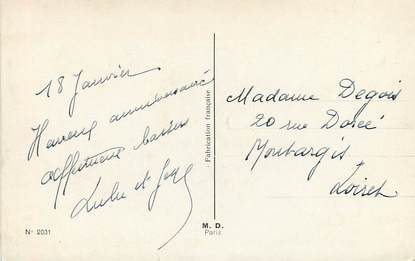 18 Janvier
Heureux anniversaire
affectueux baisers
Lulu et
Fabrication française
Madame Degois
20 rue Dorée
Montargis
Loiret
N° 2031
M. D.
Paris